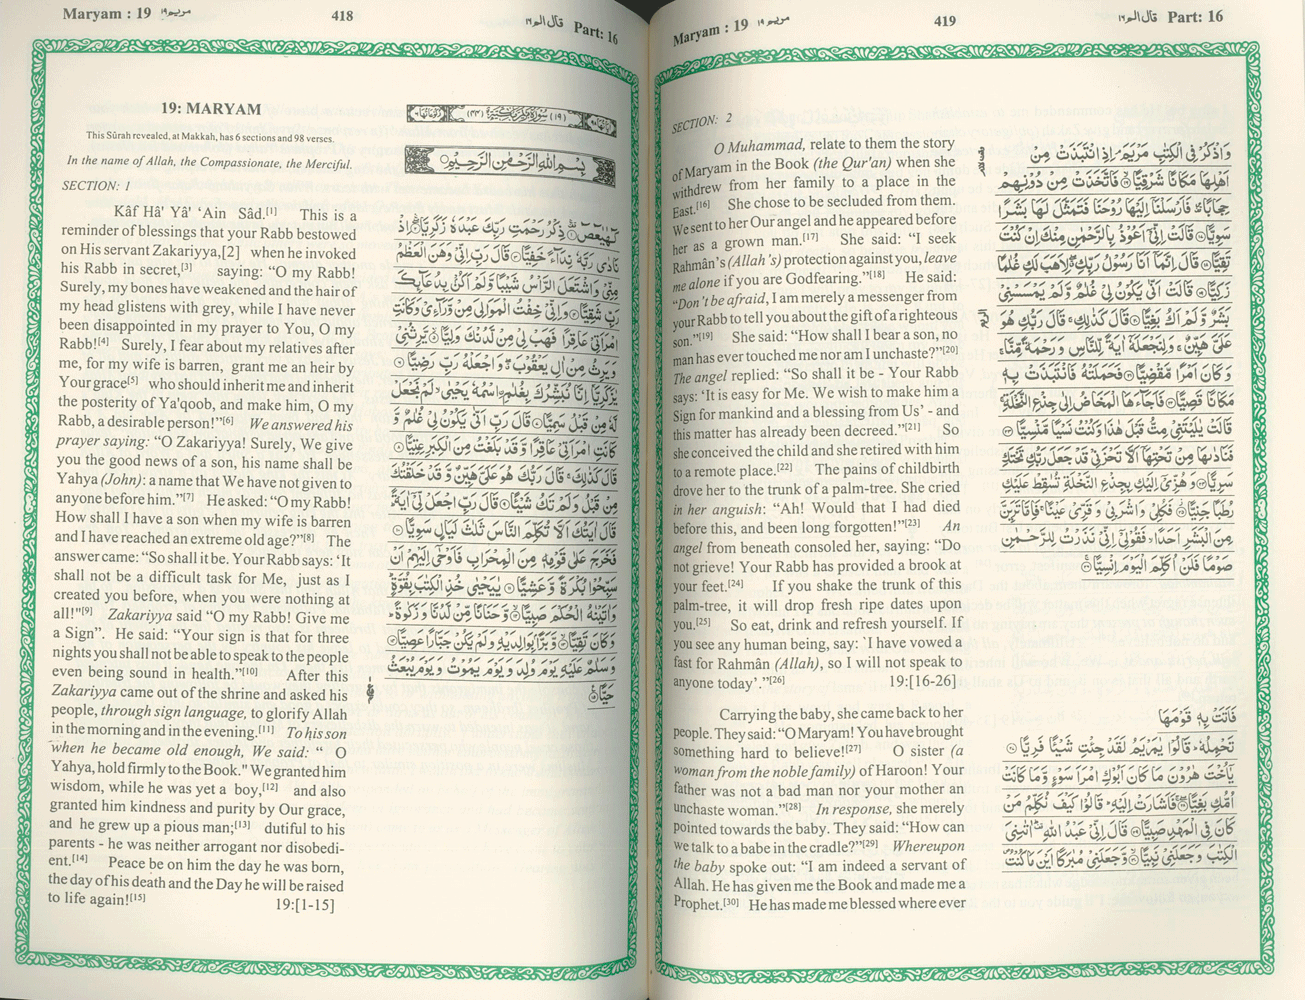 Maryam : 19 مريم ١٩ 418 قال الم ١٦ Part: 16
19: MARYAM
This Sûrah revealed, at Makkah, has 6 sections and 98 verses.
In the name of Allah, the Compassionate, the Merciful.
SECTION: 1
Kâf Hâ' Yâ' ‘Ain Sâd.[1] This is a
reminder of blessings that your Rabb bestowed
on His servant Zakariyya,[2] when he invoked
his Rabb in secret,[3] saying: “O my Rabb!
Surely, my bones have weakened and the hair of
my head glistens with grey, while I have never
been disappointed in my prayer to You, O my
Rabb![4] Surely, I fear about my relatives after
me, for my wife is barren, grant me an heir by
Your grace[5] who should inherit me and inherit
the posterity of Ya'qoob, and make him, O my
Rabb, a desirable person!”[6] We answered his
prayer saying: “O Zakariyya! Surely, We give
you the good news of a son, his name shall be
Yahya (John): a name that We have not given to
anyone before him.”[7] He asked: “O my Rabb!
How shall I have a son when my wife is barren
and I have reached an extreme old age?”[8] The
answer came: “So shall it be. Your Rabb says: ‘It
shall not be a difficult task for Me, just as I
created you before, when you were nothing at
all!"[9] Zakariyya said “O my Rabb! Give me
a Sign”. He said: “Your sign is that for three
nights you shall not be able to speak to the people
even being sound in health.”[10] After this
Zakariyya came out of the shrine and asked his
people, through sign language, to glorify Allah
in the morning and in the evening.[11] To his son
when he became old enough, We said: “ O
Yahya, hold firmly to the Book." We granted him
wisdom, while he was yet a boy,[12] and also
granted him kindness and purity by Our grace,
and he grew up a pious man;[13] dutiful to his
parents - he was neither arrogant nor disobedi-
ent.[14] Peace be on him the day he was born,
the day of his death and the Day he will be raised
to life again![15] 19:[1-15]
بِسْمِ اللهِ الرَّحْمٰنِ الرَّحِيْمِ
كٓهٰيٰعٓصٓ ذِكْرُ رَحْمَتِ رَبِّكَ عَبْدَهٗ زَكَرِيَّا اِذْ
نَادٰى رَبَّهٗ نِدَآءً خَفِيًّا قَالَ رَبِّ اِنِّيْ وَهَنَ الْعَظْمُ
مِنِّيْ وَاشْتَعَلَ الرَّاْسُ شَيْبًا وَّلَمْ اَكُنْۢ بِدُعَآئِكَ
رَبِّ شَقِيًّا وَاِنِّيْ خِفْتُ الْمَوَالِيَ مِنْ وَّرَآءِيْ وَكَانَتِ
امْرَاَتِيْ عَاقِرًا فَهَبْ لِيْ مِنْ لَّدُنْكَ وَلِيًّا يَّرِثُنِيْ
وَيَرِثُ مِنْ اٰلِ يَعْقُوْبَ وَاجْعَلْهُ رَبِّ رَضِيًّا
يٰزَكَرِيَّآ اِنَّا نُبَشِّرُكَ بِغُلٰمِ اسْمُهٗ يَحْيٰى لَمْ نَجْعَلْ
لَّهٗ مِنْ قَبْلُ سَمِيًّا قَالَ رَبِّ اَنّٰى يَكُوْنُ لِيْ غُلٰمٌ وَّ
كَانَتِ امْرَاَتِيْ عَاقِرًا وَّقَدْ بَلَغْتُ مِنَ الْكِبَرِ عِتِيًّا
قَالَ كَذٰلِكَ قَالَ رَبُّكَ هُوَ عَلَيَّ هَيِّنٌ وَّقَدْ خَلَقْتُكَ
مِنْ قَبْلُ وَلَمْ تَكُ شَيْئًا قَالَ رَبِّ اجْعَلْ لِّيْ اٰيَةً
قَالَ اٰيَتُكَ اَلَّا تُكَلِّمَ النَّاسَ ثَلٰثَ لَيَالٍ سَوِيًّا
فَخَرَجَ عَلٰى قَوْمِهٖ مِنَ الْمِحْرَابِ فَاَوْحٰٓى اِلَيْهِمْ اَنْ
سَبِّحُوْا بُكْرَةً وَّعَشِيًّا يٰيَحْيٰى خُذِ الْكِتٰبَ بِقُوَّةٍ
وَاٰتَيْنٰهُ الْحُكْمَ صَبِيًّا وَّحَنَانًا مِّنْ لَّدُنَّا وَزَكٰوةً
وَكَانَ تَقِيًّا وَّبَرًّۢا بِوَالِدَيْهِ وَلَمْ يَكُنْ جَبَّارًا عَصِيًّا
وَسَلٰمٌ عَلَيْهِ يَوْمَ وُلِدَ وَيَوْمَ يَمُوْتُ وَيَوْمَ يُبْعَثُ
حَيًّا
Maryam : 19 مريم ١٩ 419 قال الم ١٦ Part: 16
SECTION: 2
O Muhammad, relate to them the story
of Maryam in the Book (the Qur'an) when she
withdrew from her family to a place in the
East.[16] She chose to be secluded from them.
We sent to her Our angel and he appeared before
her as a grown man.[17] She said: “I seek
Rahmân’s (Allah’s) protection against you, leave
me alone if you are Godfearing.”[18] He said:
“Don't be afraid, I am merely a messenger from
your Rabb to tell you about the gift of a righteous
son.”[19] She said: “How shall I bear a son, no
man has ever touched me nor am I unchaste?”[20]
The angel replied: “So shall it be - Your Rabb
says: ‘It is easy for Me. We wish to make him a
Sign for mankind and a blessing from Us’ - and
this matter has already been decreed.”[21] So
she conceived the child and she retired with him
to a remote place.[22] The pains of childbirth
drove her to the trunk of a palm-tree. She cried
in her anguish: “Ah! Would that I had died
before this, and been long forgotten!”[23] An
angel from beneath consoled her, saying: “Do
not grieve! Your Rabb has provided a brook at
your feet.[24] If you shake the trunk of this
palm-tree, it will drop fresh ripe dates upon
you.[25] So eat, drink and refresh yourself. If
you see any human being, say: `I have vowed a
fast for Rahmân (Allah), so I will not speak to
anyone today’.”[26] 19:[16-26]
Carrying the baby, she came back to her
people. They said: “O Maryam! You have brought
something hard to believe![27] O sister (a
woman from the noble family) of Haroon! Your
father was not a bad man nor your mother an
unchaste woman.”[28] In response, she merely
pointed towards the baby. They said: “How can
we talk to a babe in the cradle?”[29] Whereupon
the baby spoke out: “I am indeed a servant of
Allah. He has given me the Book and made me a
Prophet.[30] He has made me blessed where ever
وَاذْكُرْ فِي الْكِتٰبِ مَرْيَمَ اِذِ انْتَبَذَتْ مِنْ
اَهْلِهَا مَكَانًا شَرْقِيًّا فَاتَّخَذَتْ مِنْ دُوْنِهِمْ
حِجَابًا فَاَرْسَلْنَآ اِلَيْهَا رُوْحَنَا فَتَمَثَّلَ لَهَا بَشَرًا
سَوِيًّا قَالَتْ اِنِّيْٓ اَعُوْذُ بِالرَّحْمٰنِ مِنْكَ اِنْ كُنْتَ
تَقِيًّا قَالَ اِنَّمَآ اَنَا رَسُوْلُ رَبِّكِ لِاَهَبَ لَكِ غُلٰمًا
زَكِيًّا قَالَتْ اَنّٰى يَكُوْنُ لِيْ غُلٰمٌ وَّلَمْ يَمْسَسْنِيْ
بَشَرٌ وَّلَمْ اَكُ بَغِيًّا قَالَ كَذٰلِكِ قَالَ رَبُّكِ هُوَ
عَلَيَّ هَيِّنٌ وَلِنَجْعَلَهٗٓ اٰيَةً لِّلنَّاسِ وَرَحْمَةً مِّنَّا
وَكَانَ اَمْرًا مَّقْضِيًّا فَحَمَلَتْهُ فَانْتَبَذَتْ بِهٖ
مَكَانًا قَصِيًّا فَاَجَآءَهَا الْمَخَاضُ اِلٰى جِذْعِ النَّخْلَةِ
قَالَتْ يٰلَيْتَنِيْ مِتُّ قَبْلَ هٰذَا وَكُنْتُ نَسْيًا مَّنْسِيًّا
فَنَادٰىهَا مِنْ تَحْتِهَآ اَلَّا تَحْزَنِيْ قَدْ جَعَلَ رَبُّكِ تَحْتَكِ
سَرِيًّا وَهُزِّيْٓ اِلَيْكِ بِجِذْعِ النَّخْلَةِ تُسٰقِطْ عَلَيْكِ
رُطَبًا جَنِيًّا فَكُلِيْ وَاشْرَبِيْ وَقَرِّيْ عَيْنًا فَاِمَّا تَرَيِنَّ
مِنَ الْبَشَرِ اَحَدًا فَقُوْلِيْٓ اِنِّيْ نَذَرْتُ لِلرَّحْمٰنِ
صَوْمًا فَلَنْ اُكَلِّمَ الْيَوْمَ اِنْسِيًّا
فَاَتَتْ بِهٖ قَوْمَهَا
تَحْمِلُهٗ قَالُوْا يٰمَرْيَمُ لَقَدْ جِئْتِ شَيْئًا فَرِيًّا
يٰٓاُخْتَ هٰرُوْنَ مَا كَانَ اَبُوْكِ امْرَاَ سَوْءٍ وَّمَا كَانَتْ
اُمُّكِ بَغِيًّا فَاَشَارَتْ اِلَيْهِ قَالُوْا كَيْفَ نُكَلِّمُ مَنْ
كَانَ فِي الْمَهْدِ صَبِيًّا قَالَ اِنِّيْ عَبْدُ اللهِ اٰتٰىنِيَ
الْكِتٰبَ وَجَعَلَنِيْ نَبِيًّا وَّجَعَلَنِيْ مُبٰرَكًا اَيْنَ مَا كُنْتُ